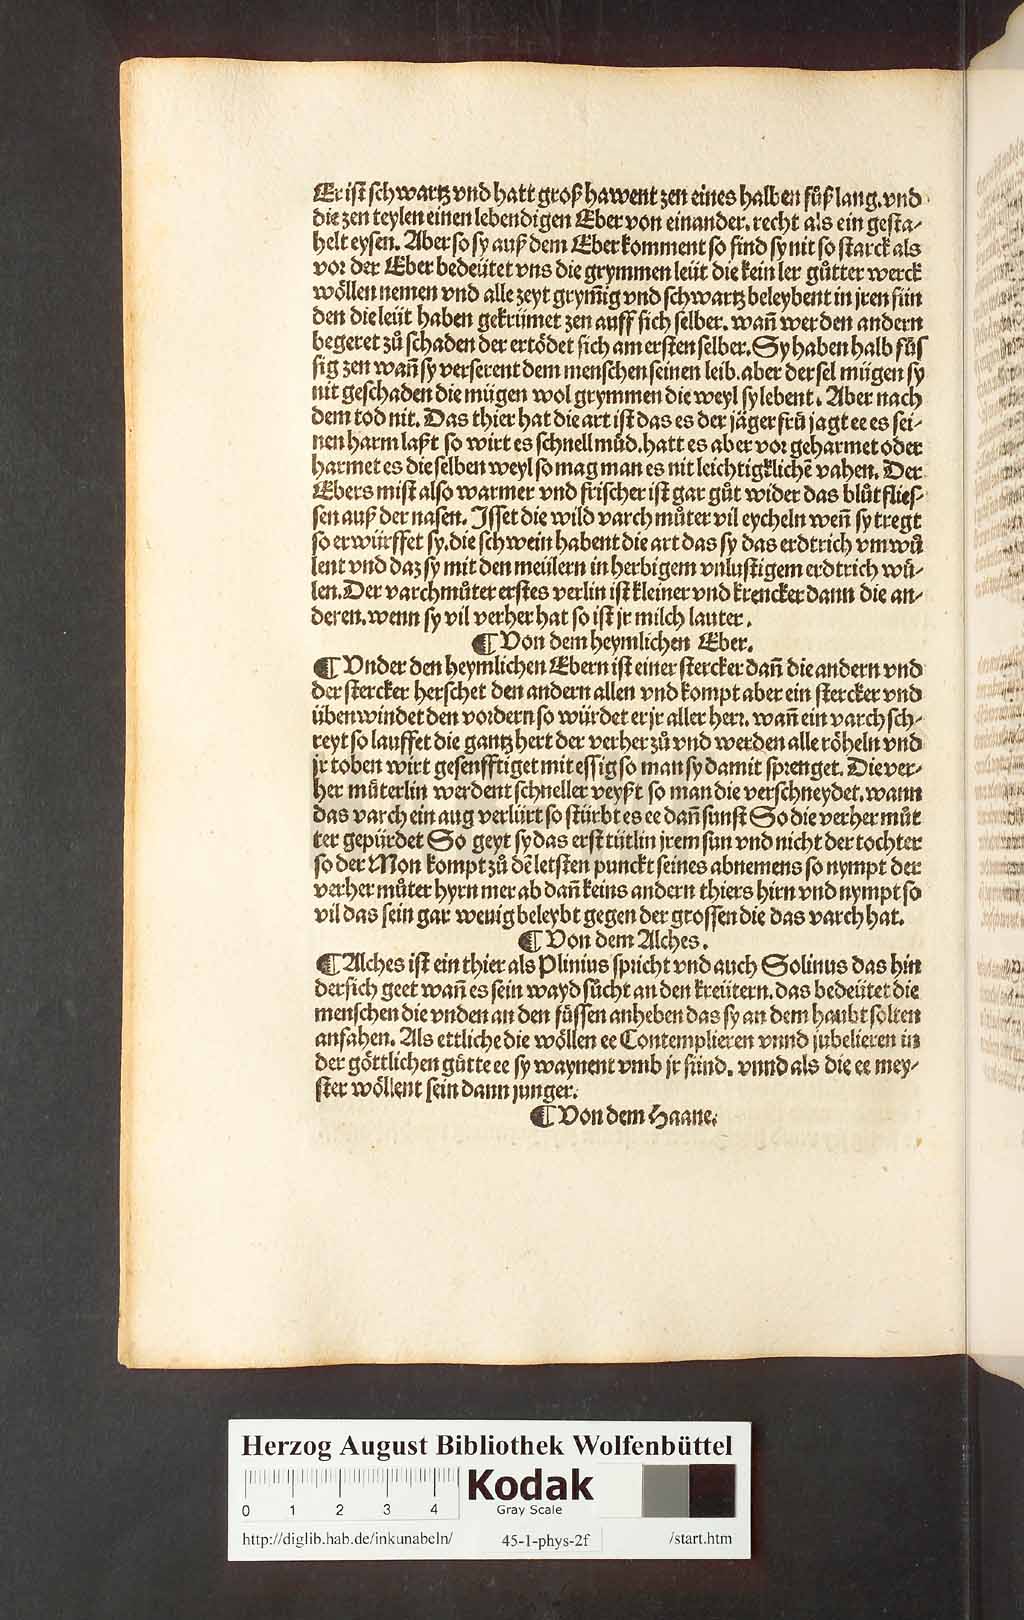 Er ist schwartz vnd hatt groß hawent zen eines halben fůß lang. vnd
die zen teylen einen lebendigen Eber von einander. recht als ein gesta-
helt eysen. Aber so sy auß dem Eber komment so sind sy nit so starck als
vor der Eber bedeütet vns die grymmen leüt die kein ler gůtter werck
wöllen nemen vnd alle zeyt grym̃ig vnd schwartz beleybent in jren sün
den die leüt haben gekrümet zen auff sich selber. wañ wer den andern
begeret zů schaden der ertödet sich am ersten selber. Sy haben halb fůs
sig zen wañ sy verserent dem menschen seinen leib. aber der sel mügen sy
nit geschaden die mügen wol grymmen die weyl sy lebent. Aber nach
dem tod nit. Das thier hat die art ist das es der jäger frů jagt ee es sei-
nen harm laßt so wirt es schnell müd. hatt es aber vor geharmet oder
harmet es die selben weyl so mag man es nit leichtigklichẽ vahen. Der
Ebers mist also warmer vnd frischer ist gar gůt wider das blůt flies-
sen auß der nasen. Isset die wild varch můter vil eycheln weñ sy tregt
so erwürffet sy. die schwein habent die art das sy das erdtrich vmwů
lent vnd daz sy mit den meülern in herbigem vnlustigem erdtrich wů-
len. Der varchmůter erstes verlin ist kleiner vnd krencker dann die an-
deren. wenn sy vil verher hat so ist jr milch lauter.
¶ Von dem heymlichen Eber.
¶ Vnder den heymlichen Ebern ist einer stercker dañ die andern vnd
der stercker herschet den andern allen vnd kompt aber ein stercker vnd
übenwindet den vordern so würdet er jr aller herr. wañ ein varch sch-
reyt so lauffet die gantz hert der verher zů vnd werden alle röheln vnd
jr toben wirt gesenfftiget mit essig so man sy damit sprenget. Die ver-
her můterlin werdent schneller veyßt so man die verschneydet. wann
das varch ein aug verlürt so stürbt es ee dañ sunst So die verher můt
ter gepürdet So geyt sy das erst tütlin jrem sun vnd nicht der tochter
so der Mon kompt zů dẽ letsten punckt seines abnemens so nympt der
verher můter hyrn mer ab dañ keins andern thiers hirn vnd nympt so
vil das sein gar wenig beleybt gegen der grossen die das varch hat.
¶ Von dem Alches.
¶ Alches ist ein thier als Plinius spricht vnd auch Solinus das hin
dersich geet wañ es sein wayd sůcht an den kreütern. das bedeütet die
menschen die vnden an den füssen anheben das sy an dem haubt solten
anfahen. Als ettliche die wöllen ee Contemplieren vnnd jubelieren in
der göttlichen gůtte ee sy waynent vmb jr sünd. vnnd als die ee mey-
ster wöllent sein dann junger.
¶ Von dem Haane.
Herzog August Bibliothek Wolfenbüttel
0 1 2 3 4
Kodak
Gray Scale
http://diglib.hab.de/inkunabeln/ 45-1-phys-2f /start.htm